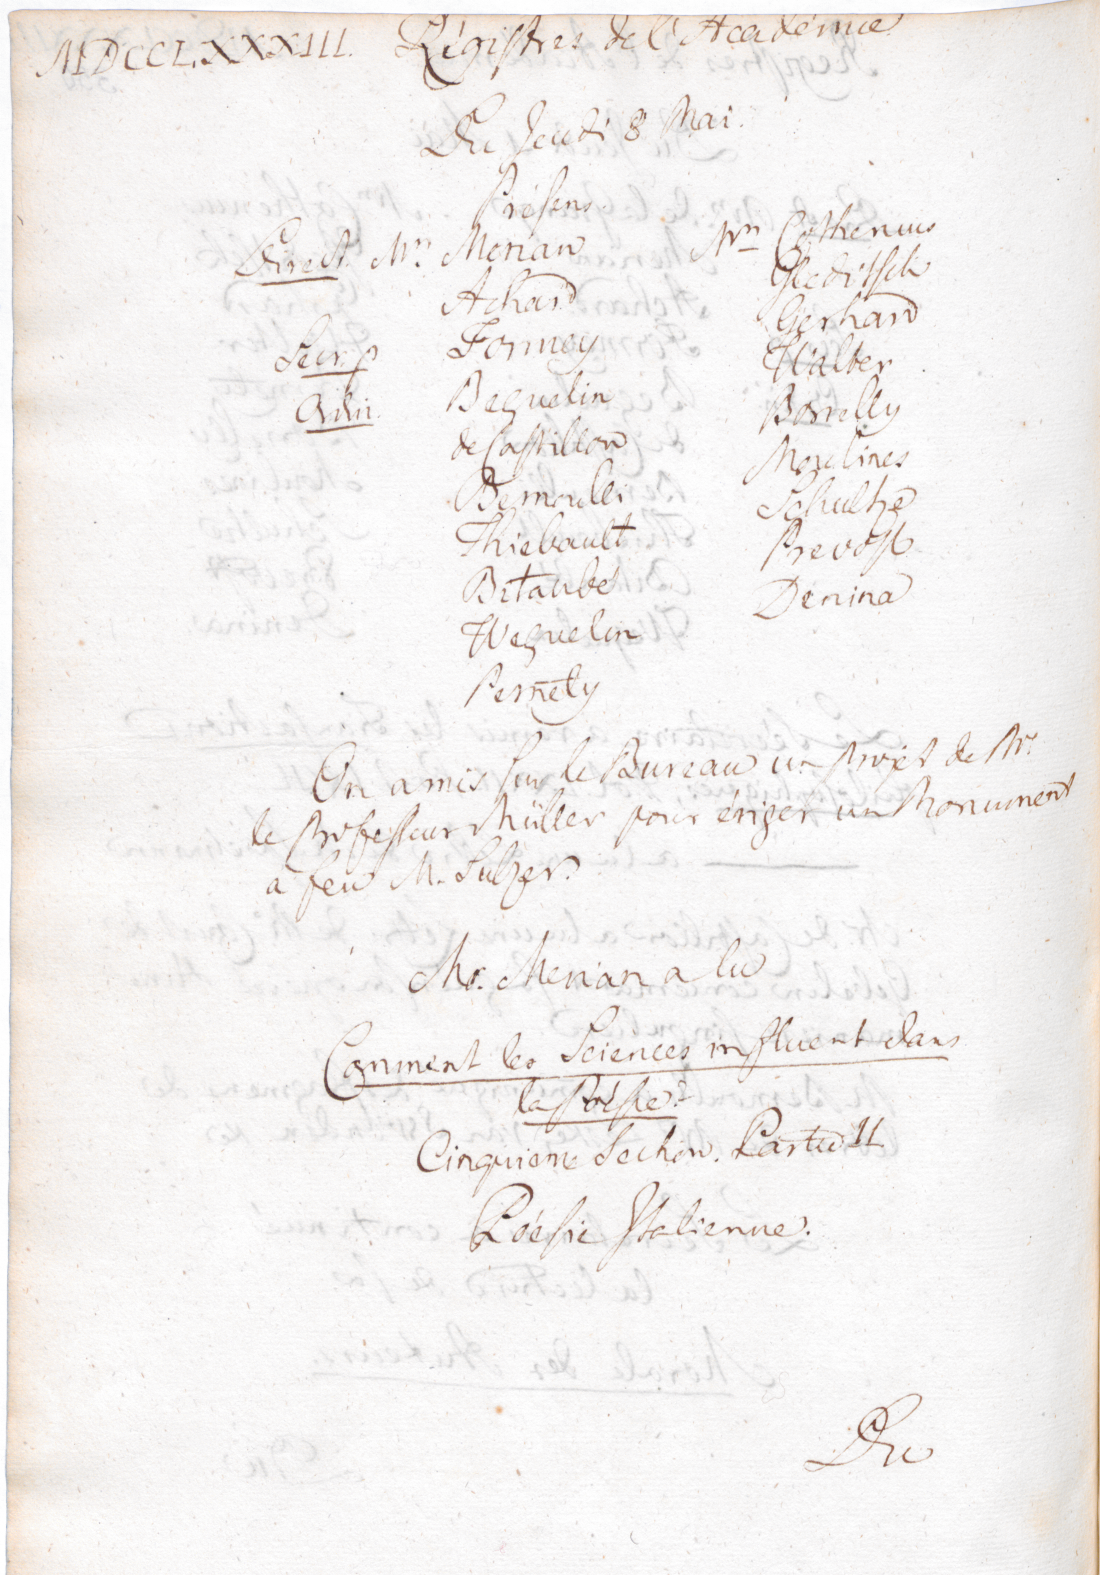 MDCCLXXXIII. Régistres de l'Académie
Du Jeudi 8 Mai.
Présens.
Direct. Mrs. Merian
Achard
Secr. p Formey
Beguelin
de Castillon
Bernoulli
Thiebault
Bitaubé
Weguelin
Pernety
Mrs Cothenius
Gleditsch
Gerhard
Walter
Borrelly
Moulines
Schultze
Prevost
Denina
On a mis sur le Bureau un Projet de Mr.
le Professeur Müller pour ériger un Monument
a feu M. Sulzer.
Mr. Merian a lu
Comment les Sciences influent dans
la Poésie?
Cinquieme Section. Partie II
Poésie Italienne.
Du